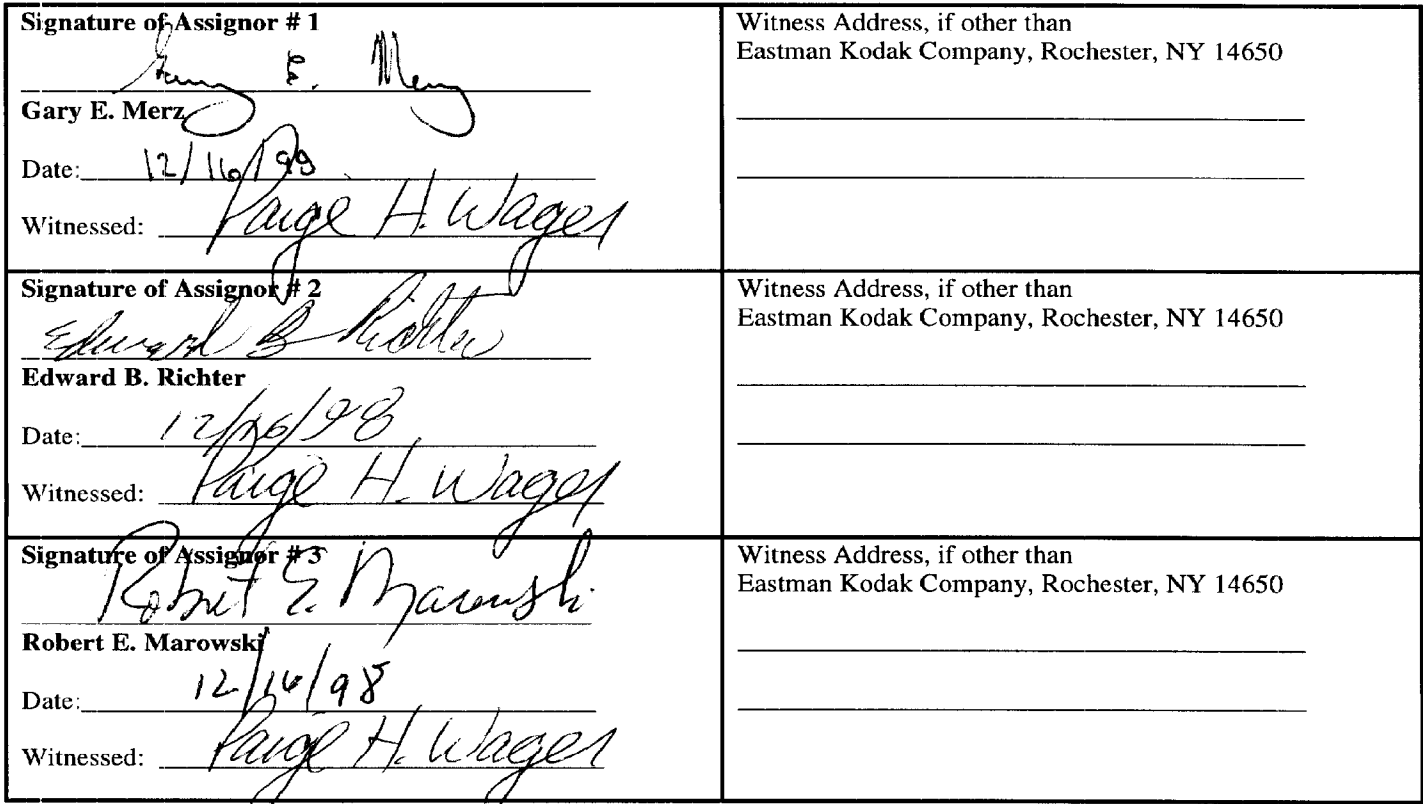 Signature of Assignor # 1
Gary E. Merz
Gary E. Merz
Date: 12/16/98
Witnessed: Paige H. Wages
Witness Address, if other than
Eastman Kodak Company, Rochester, NY 14650
Signature of Assignor # 2
Edward B Richter
Edward B. Richter
Date: 12/16/98
Witnessed: Paige H. Wages
Witness Address, if other than
Eastman Kodak Company, Rochester, NY 14650
Signature of Assignor # 3
Robert E. Marowski
Robert E. Marowski
Date: 12/16/98
Witnessed: Paige H. Wages
Witness Address, if other than
Eastman Kodak Company, Rochester, NY 14650